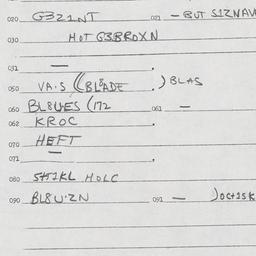 020 G3Z1NT 021 - BUT S1ZNAV
030 HOT G3BROXN
032 —
050 VA.S ((BLADE .) BLAS
060 BL8UES (172 061 —
062 KROC
070 HEFT
071 —
080 HOLC
090 BL8U.ZN 091 —